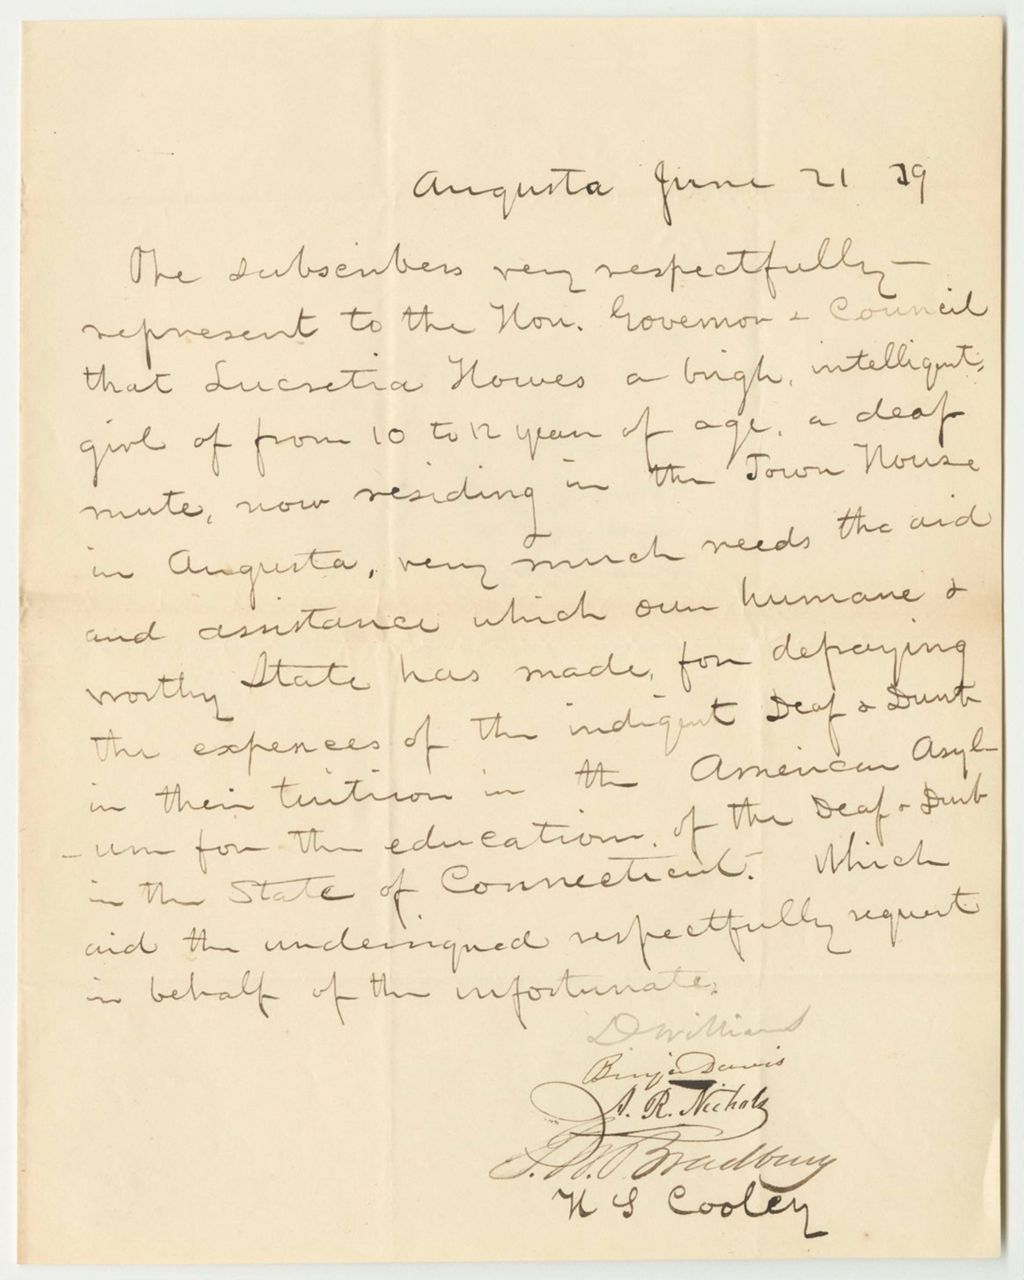 Augusta June 21 39
The subscribers very respectfully—
represent to the Hon. Governor & Council
that Lucretia Howes a brigh, intelligent,
girl of from 10 to 12 years of age, a deaf
mute, now residing in the Town House
in Augusta, very much needs the aid
and assistance which our humane &
worthy State has made, for defraying
the expences of the indigent Deaf & Dumb
in their tuition in the American Asyl-
-um for the education, of the Deaf & Dumb
in the State of Connecticut. Which
aid the undersigned respectfully request
in behalf of the unfortunate.
D Williams
Benja Davis
A. R. Nichols
J. W. Bradbury
H S Cooley